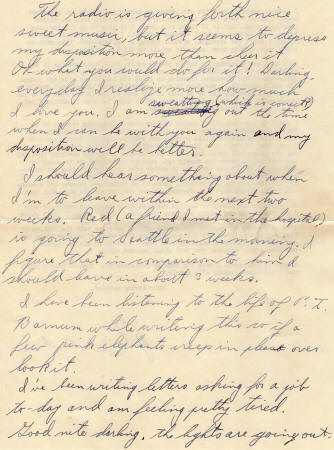 The radio is giving forth nice
sweet music, but it seems to depress
my disposition more than cheer it.
Oh what you would do for it! Darling,
everyday I realize more how much
I love you. I am sweatting (which is correct?) out the time
when I can be with you again and my
disposition will be better.
I should hear something about when
I'm to leave within the next two
weeks. Red (a friend I met in the hospital)
is going to Seattle in the morning. I
figure that in comparison to him I
should leave in about 3 weeks.
I have been listening to the life of P. T.
Barnum while writing this so if a
few pink elephants creep in please over
look it.
I've been writing letters asking for a job
to-day and am feeling pretty tired.
Good nite darling, the lights are going out.